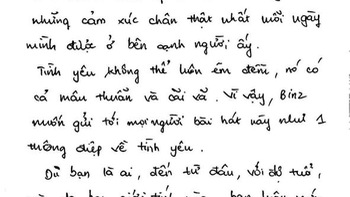 những cảm xúc chân thật nhất mỗi ngày
mình được ở bên cạnh người ấy.
Tình yêu không thể luôn êm đềm, nó có
cả mâu thuẫn và cãi vã. Vì vậy, Binz
muốn gửi tới mọi người bài hát này như 1
thông điệp về tình yêu.
Dù bạn là ai, đến từ đâu, với độ tuổi,